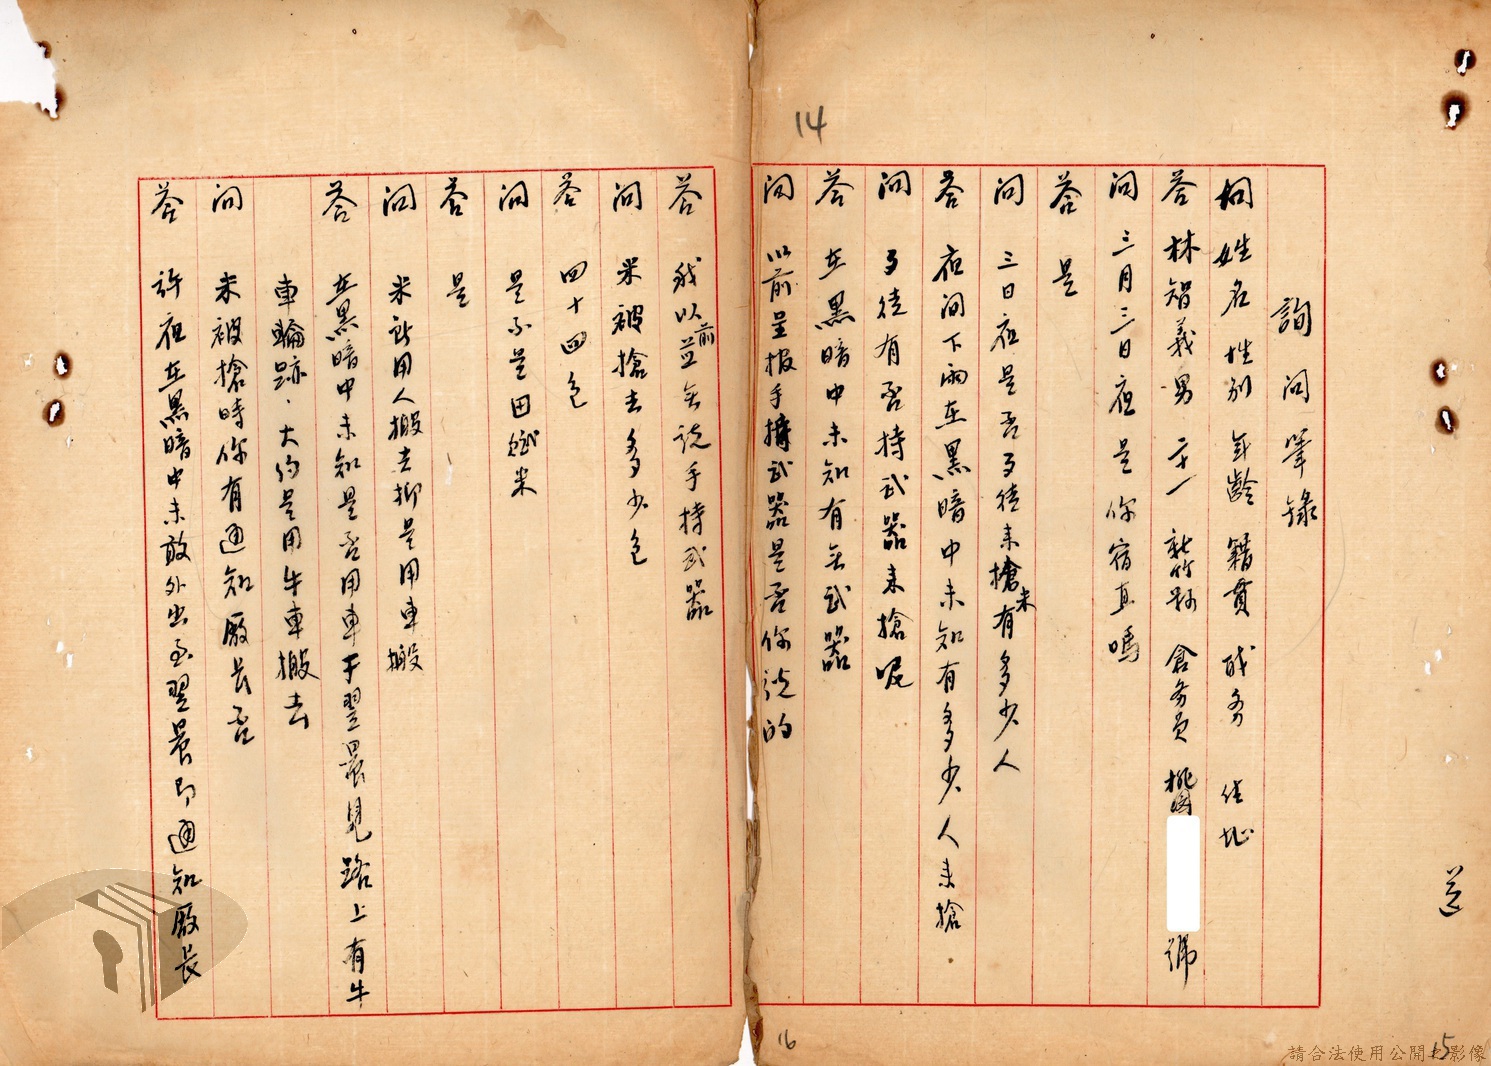 14
詢問筆錄
問 姓名 性別 年齡 籍貫 職務 住址
答 林智義 男 二十一 新竹縣 倉務員 桃園 號
問 三月三日夜是你宿直嗎
答 是
問 三日夜是否歹徒來搶米有多少人
答 夜間下雨在黑暗中未知有多少人來搶
問 歹徒有否持武器來搶呢
答 在黑暗中未知有無武器
問 以前呈报手持武器是否你說的
答 我以前並無說手持武器
問 米被搶去多少包
答 四十四包
問 是不是田賦米
答 是
問 米就用人搬去抑是用車搬
答 在黑暗中未知是否用車于翌晨見路上有牛
車輪跡．大約是用牛車搬去
問 米被搶時你有通知廠長否
答 許夜在黑暗中未敢外出至翌晨即通知廠長
16
15
請合法使用公開之影像